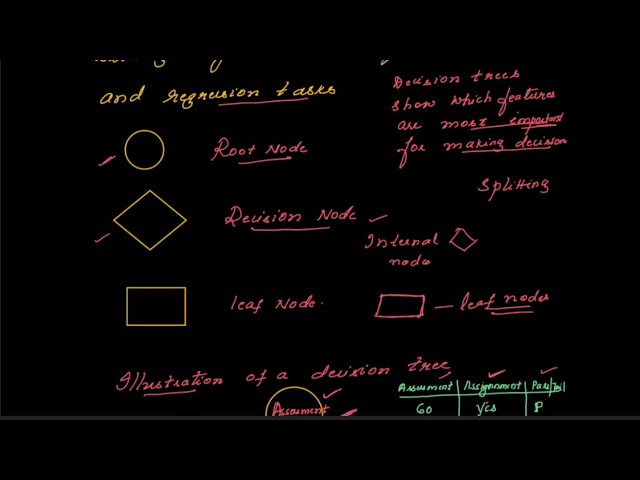 and regression tasks
Decision trees
show which features
are most important
for making decision
Root Node
Splitting
Decision Node
Internal
nodes
leaf Node.
leaf nodes
Illustration of a decision tree
Assessment
Assessment Assignment Pass/Fail
60 Yes P